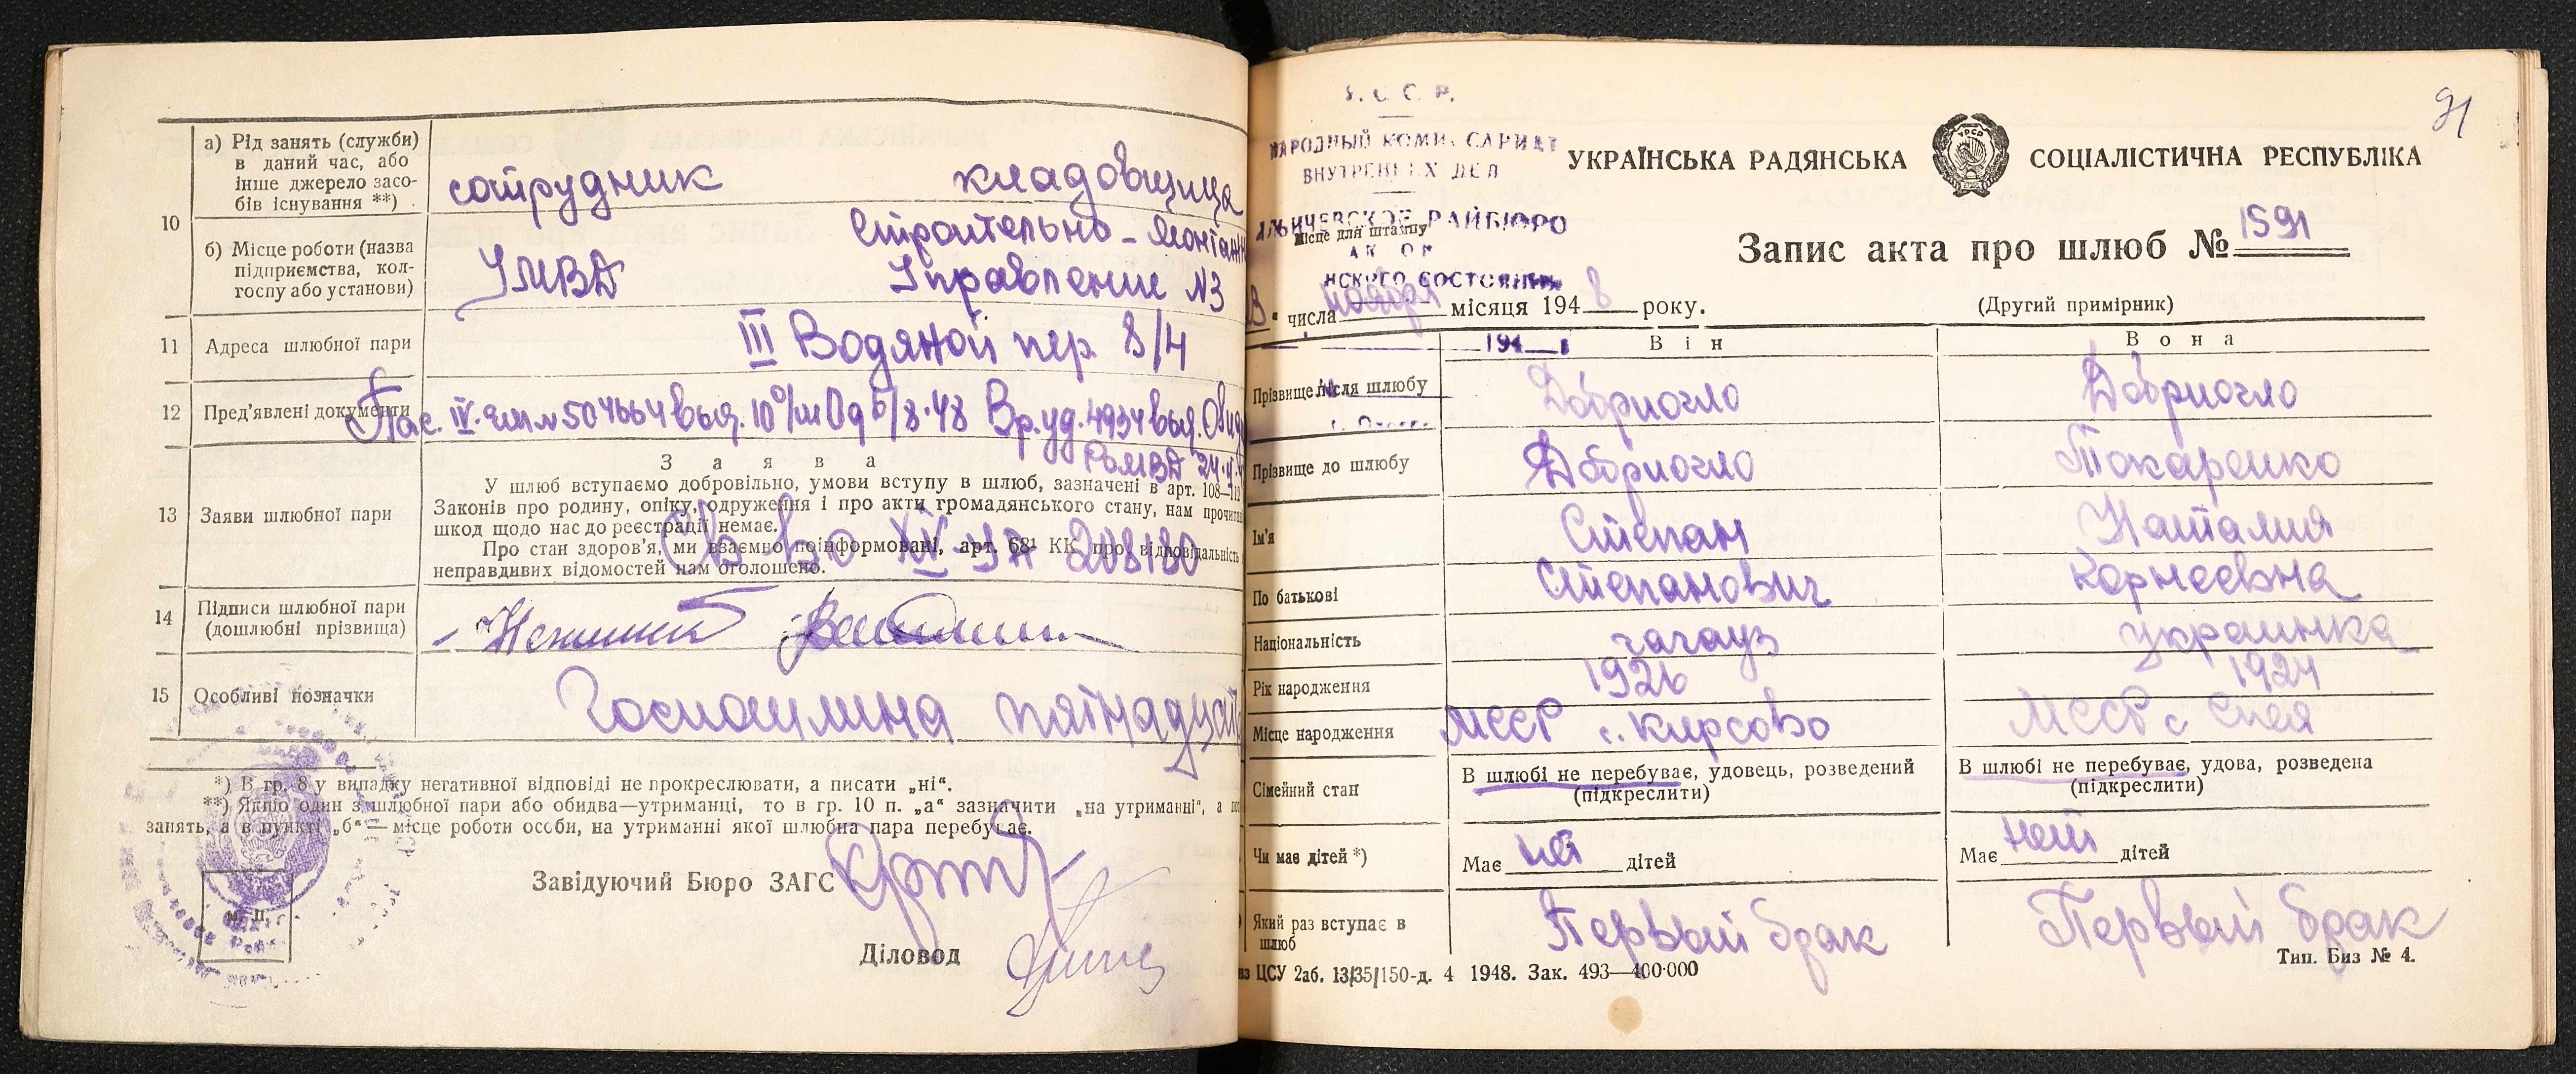 10
а) Рід занять (служби)
в даний час, або
інше джерело засо-
бів існування **)
сотрудник кладовщица
б) Місце роботи (назва
підприємства, кол-
госпу або установи)
УМВД
Строительно-Монтажн
Управление №3
11 Адреса шлюбної пари
III Водяной пер. 8/4
12 Пред'явлені документи
Пас. IV. 504664 выд. 10 о/м Од 6/8-48 Вр. уд. 4934 выд. Овид
РоМВД 24.
13 Заяви шлюбної пари
Заява
У шлюб вступаємо добровільно, умови вступу в шлюб, зазначені в арт. 108—112
Законів про родину, опіку, одруження і про акти громадянського стану, нам прочита
шкод щодо нас до реєстрації немає.
Про стан здоров'я, ми взаємно поінформовані, арт. 68¹ КК про відповідальність
неправдивих відомостей нам оголошено.
Св-во XIV-УА 208180
14 Підписи шлюбної пари
(дошлюбні прізвища)
15 Особливі позначки
Госпошлина пятнадцат
*) В гр. 8 у випадку негативної відповіді не прокреслювати, а писати „ні“.
**) Якщо один з шлюбної пари або обидва—утриманці, то в гр. 10 п. „а“ зазначити „на утриманні“, а
занять, а в пункті „б“—місце роботи особи, на утриманні якої шлюбна пара перебуває.
М. П.
Завідуючий Бюро ЗАГС
Діловод
91
У. С. С. Р.
НАРОДНЫЙ КОМИССАРИАТ
ВНУТРЕННИХ ДЕЛ
ИЛЬИЧЕВСКОЕ РАЙБЮРО
Місце для штампу
УКРАЇНСЬКА РАДЯНСЬКА СОЦІАЛІСТИЧНА РЕСПУБЛІКА
Запис акта про шлюб № 1591
числа ноября місяця 1948 року.
(Другий примірник)
194
Він Вона
Прізвище після шлюбу Добриогло Добриогло
Прізвище до шлюбу Добриогло Токаренко
Ім'я Степан Наталия
По батькові Степанович Корнеевна
Національність гагауз украинка
Рік народження 1926 1924
Місце народження МССР с. Кирсово МССР с Спея
Сімейний стан В шлюбі не перебуває, удовець, розведений В шлюбі не перебуває, удова, розведена
(підкреслити) (підкреслити)
Чи має дітей *) Має нет дітей Має нет дітей
Який раз вступає в
шлюб Первый брак Первый брак
ЦСУ 2аб. 13/35/150-д. 4 1948. Зак. 493—400·000
Тип. Биз № 4.